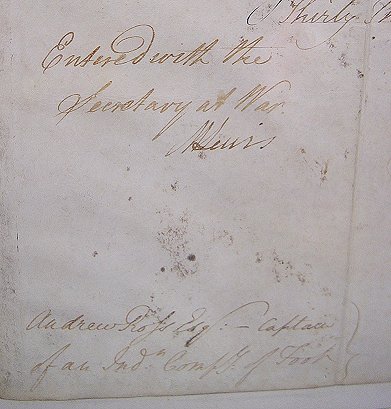 Thirty
Entered with the
Secretary at War
MLewis
Andrew Ross Esqr: – Captain
of an Indn. Compy. of Foot